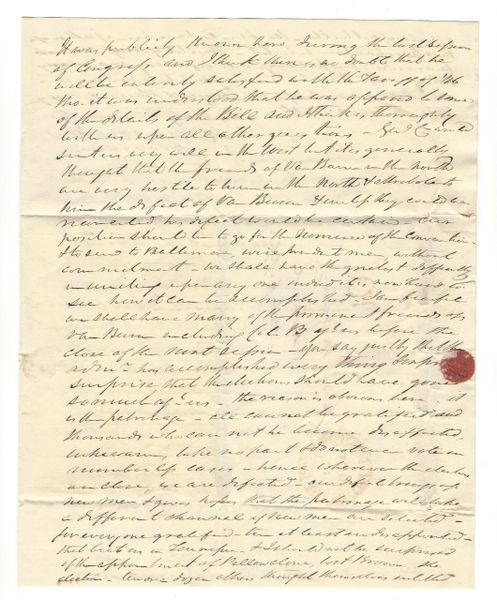 It was publicly known here during the last session
of Congress and I think there is no doubt that he
will be entirely satisfied with the Tariff of '46
tho. it was understood that he was opposed to some
of the details of the Bill and I think is thoroughly
with us upon all other questions - Genl C
very well in the West but it is generally
thought that the friends of Van Buren in the north
are very hostile to him in the North & attribute to
him the defeat of Van Buren & unless they could be
reconciled his defeat would be certain - Our
position should be to go for the Nominee of the Convention
& to send to Baltimore wise prudent men, without
commitment - we shall have the greatest difficulty
in uniting upon any one individual, now hard to
see how it can be accomplished -
we shall have many of the prominent friends of
Van Buren including Col. B against us before the
close of the next session - You say justly that the
adm'n has accomplished every thing & express
surprise that the elections should have gone
so much agt us - the reason is obvious here - it
is the patronage - all cannot be gratified and
thousands who can not be become disaffected
take no part & do not even vote in
number of cases - hence wherever the elections
are close, we are defeated - our defeat brings up
new men & gives hopes that the patronage will take
a different channel if new men are selected -
for every one gratified - ten at least are disappointed -
that beat us in Tennessee - & I should not be surprised
if the appointment of lost Brown the
election - ten or a dozen others thought themselves entitled